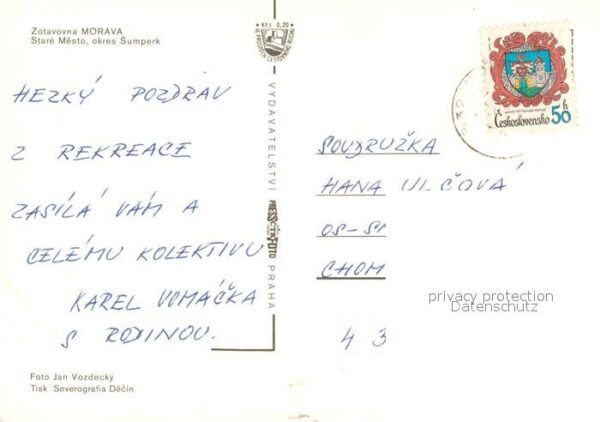 Zotavovna MORAVA
Staré Město, okres Šumperk
HEZKÝ POZDRAV
Z REKREACE
ZASÍLÁ VÁM A
CELÉMU KOLEKTIVU
KAREL VOMÁČKA
S RODINOU.
Foto Jan Vozdecký
Tisk Severografia Děčín
Kčs 0,20
VYDAVATELSTVÍ PRESSFOTO PRAHA
Československo 50 h
SOUDRUŽKA
HANA VLČOVÁ
OS-
CHOM
privacy protection
Datenschutz
4 3